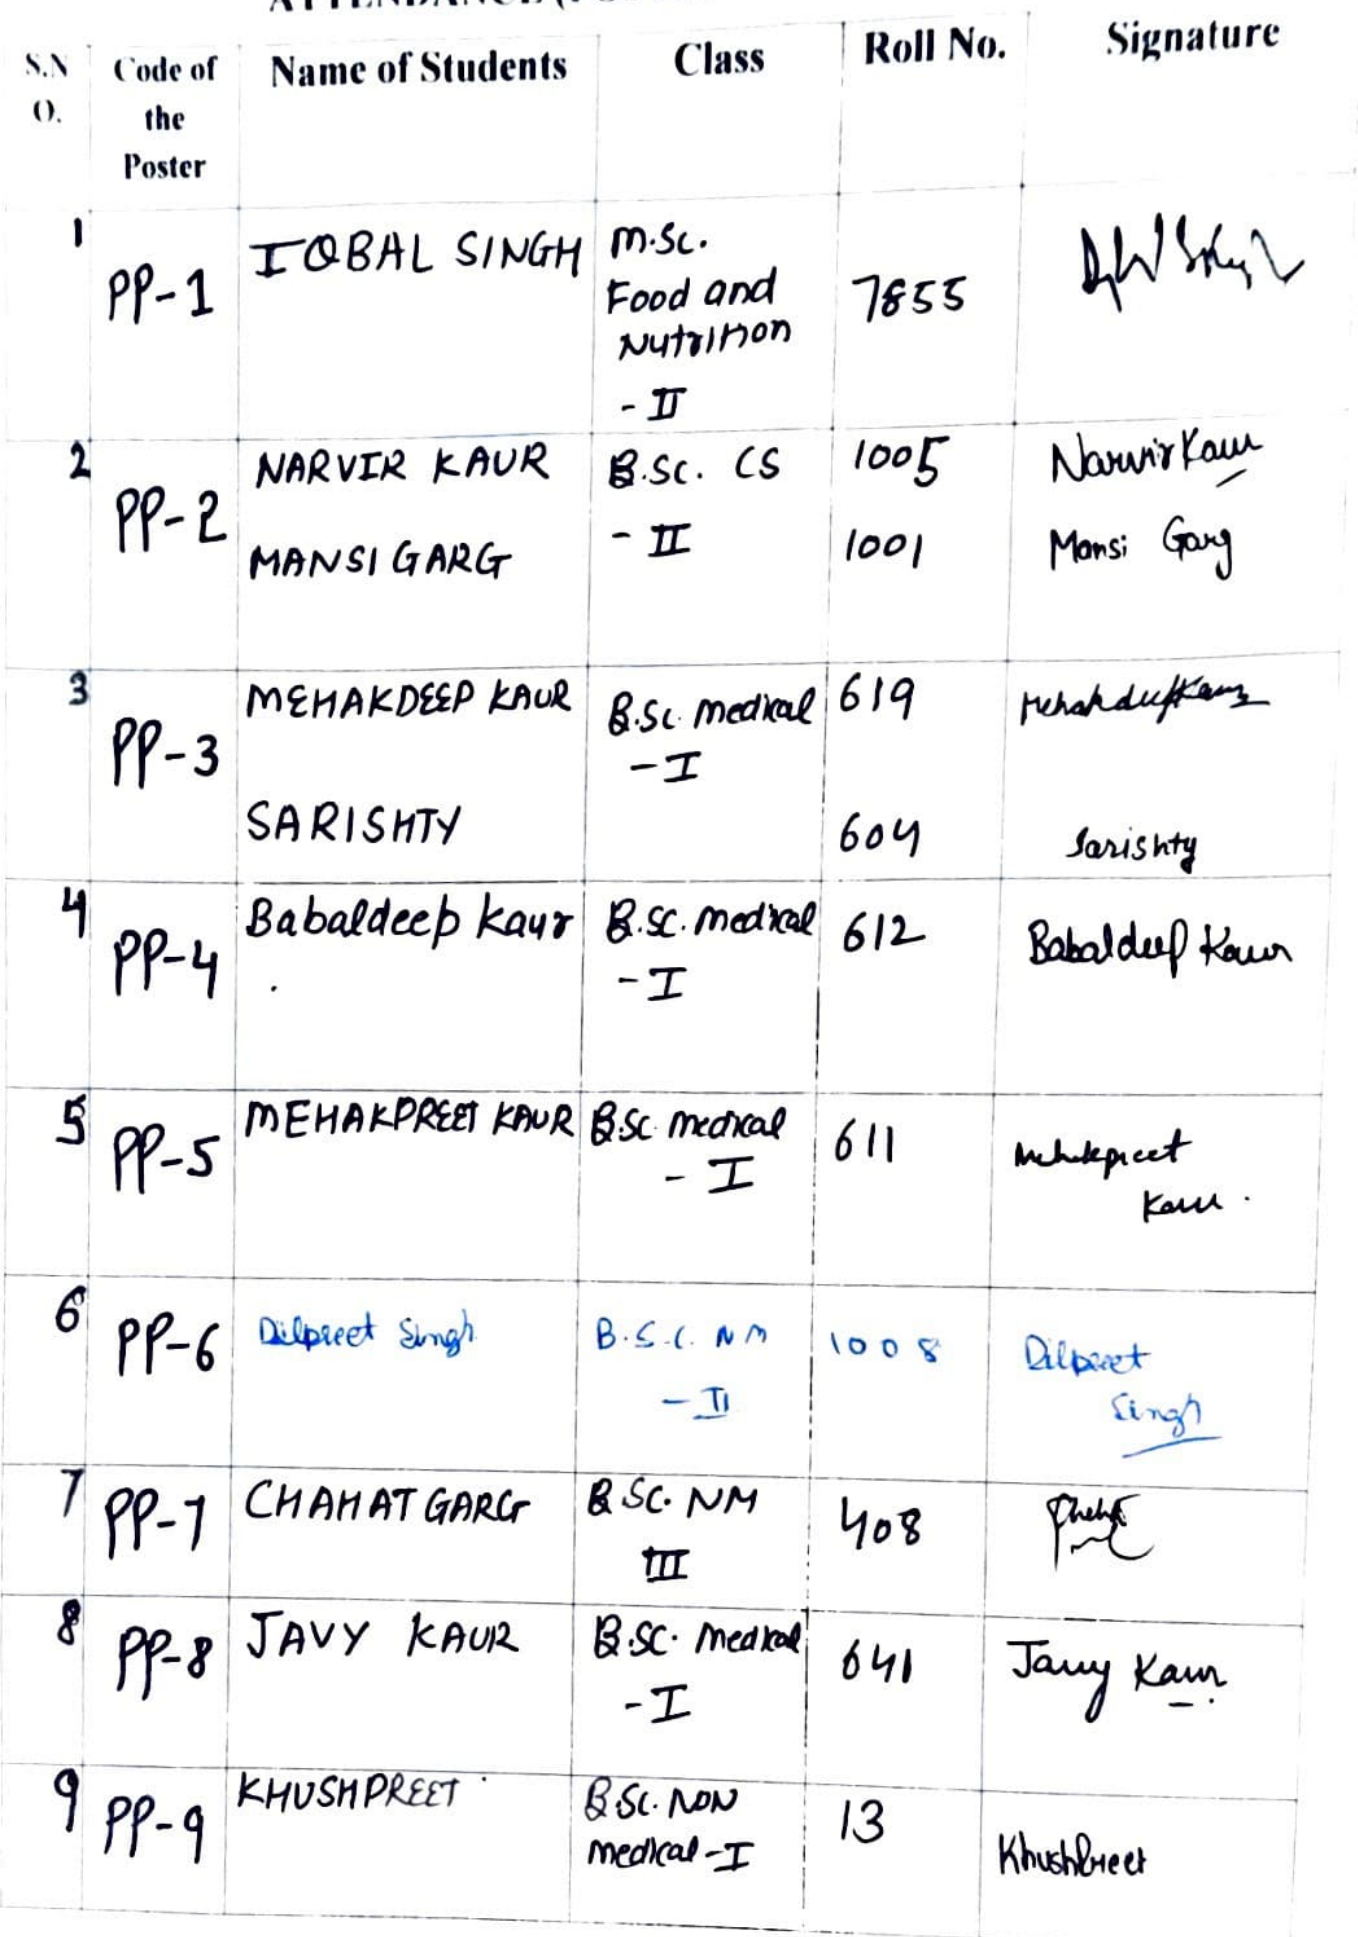 S.N
O.
Code of
the
Poster
Name of Students
Class
Roll No.
Signature
1
PP-1
IQBAL SINGH
M.Sc.
Food and
Nutrition
- II
7855
2
PP-2
NARVIR KAUR
B.Sc. CS
1005
Narvir Kaur
MANSI GARG
- II
1001
Mansi Garg
3
PP-3
MEHAKDEEP KAUR
B.Sc. Medical
- I
619
Mehakdeep Kaur
SARISHTY
604
Sarishty
4
PP-4
Babaldeep Kaur
B.SC. Medical
- I
612
Babaldeep Kaur
5
PP-5
MEHAKPREET KAUR
B.SC Medical
- I
611
Mehakpreet
Kaur.
6
PP-6
Dilpreet Singh
B.S.C. NM
- II
1008
Dilpreet
Singh
7
PP-7
CHAHAT GARG
B SC. NM
III
408
8
PP-8
JAVY KAUR
B.SC. Medical
- I
641
Javy Kaur
9
PP-9
KHUSHPREET
B.SC. NON
Medical - I
13
Khushpreet